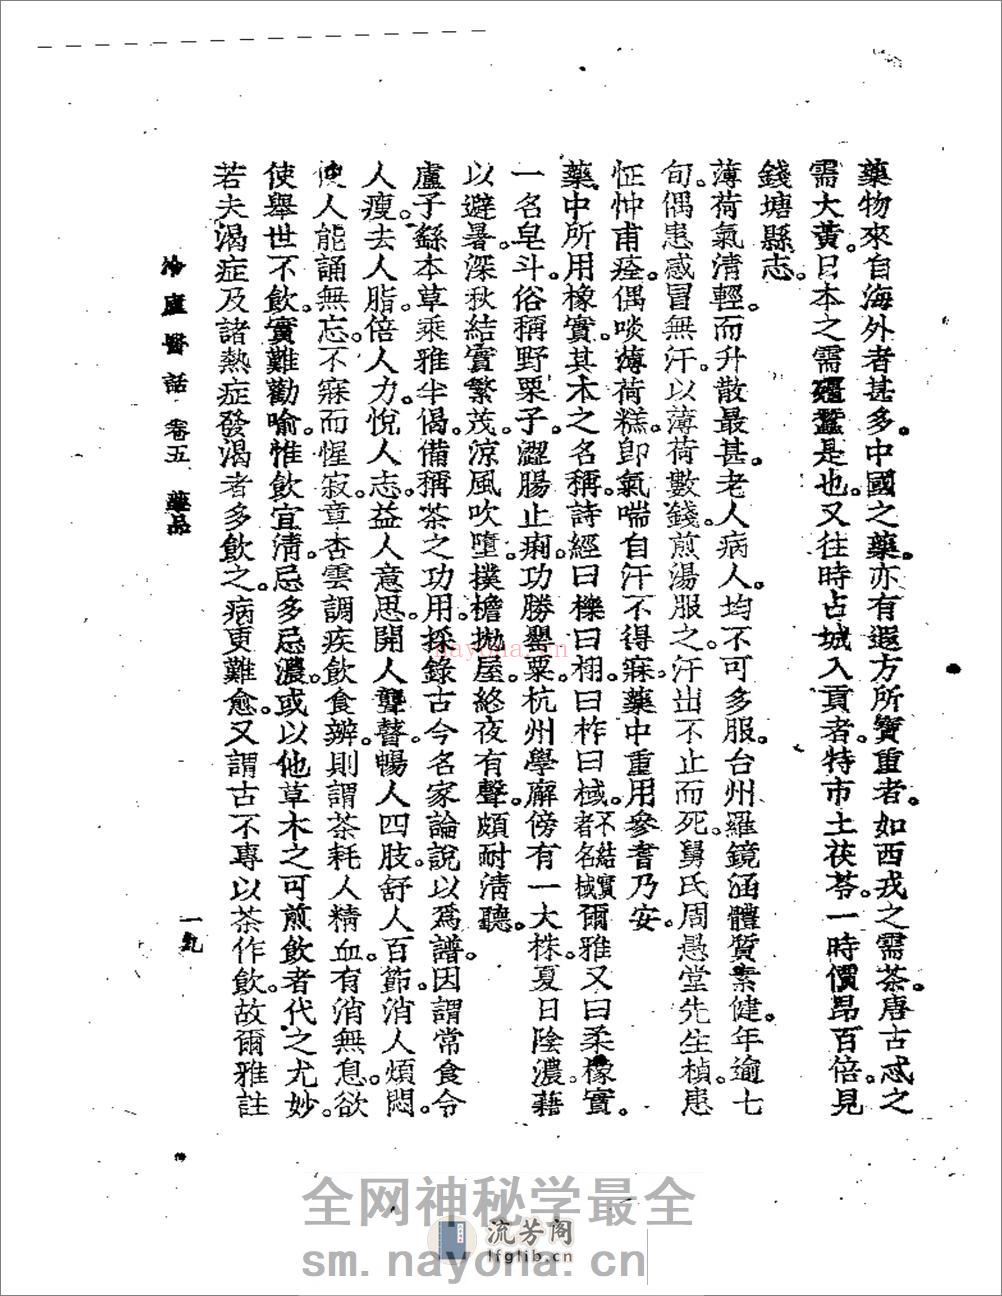 藥物來自海外者甚多。中國之藥。亦有遐方所寶重者。如西戎之需茶。唐古忒之
需大黃。日本之需殭蠶是也。又往時占城入貢者。特市土茯苓。一時價昂百倍。見
錢塘縣志。
薄荷氣清輕。而升散最甚。老人病人。均不可多服。台州羅鏡涵體質素健。年逾七
旬。偶患感冒無汗。以薄荷數錢。煎湯服之。汗出不止而死。舅氏周愚堂先生楨。患
怔忡甫痊。偶啖薄荷糕。卽氣喘自汗不得寐。藥中重用參耆乃安。
藥中所用橡實。其木之名稱。詩經曰櫟。曰栩。曰柞。曰棫。不結實者名棫爾雅又曰柔。橡實。
一名皂斗。俗稱野栗子。澀腸止痢。功勝罌粟。杭州學廨傍有一大株。夏日陰濃。藉
以避暑。深秋結實繁茂。涼風吹墮。撲檐拋屋。終夜有聲。頗耐清聽。
盧子繇本草乘雅半偈。備稱茶之功用。採錄古今名家論說以爲譜。因謂常食令
人瘦。去人脂。倍人力。悅人志。益人意思。開人聾瞽。暢人四肢。舒人百節。消人煩悶。
使人能誦無忘。不寐而惺寂。章杏雲調疾飲食辦。則謂茶耗人精血。有消無息。欲
使舉世不飲。實難勸喻。惟飲宜清。忌多忌濃。或以他草木之可煎飲者代之尤妙。
若夫渴症及諸熱症發渴者多飲之。病更難愈。又謂古不專以茶作飲。故爾雅註
冷廬醫話 卷五 藥品
一九
nayona.cn
全网神秘学最全
流芳阁
lfglib.cn
sm.nayona.cn